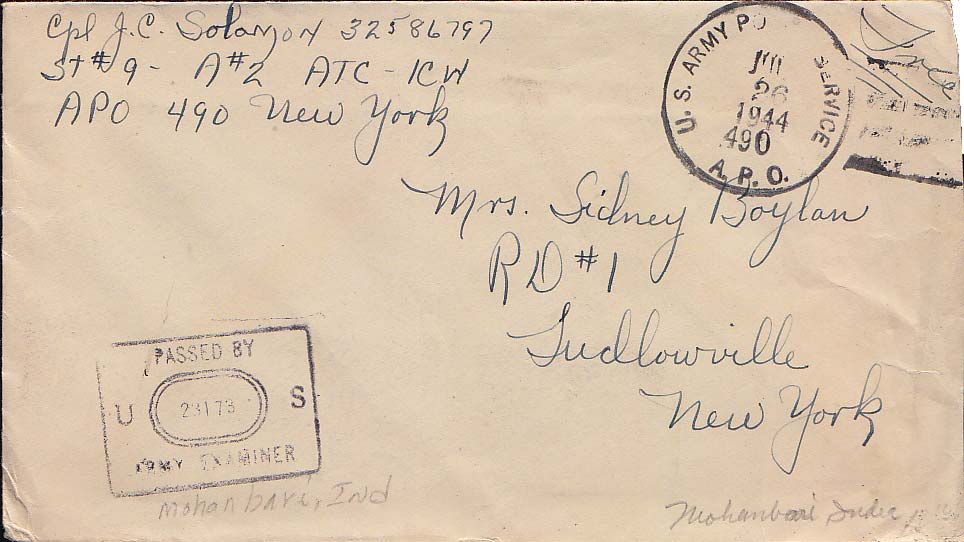 Cpl J.C. Solomon 32586797
St #9 - A#2 ATC - ICW
APO 490 New York
U.S. ARMY PO SERVICE
JUL
26
1944
490
A.P.O.
Free
Mrs. Sidney Boylan
RD #1
Ludlowville
New York
PASSED BY
U 23173 S
ARMY EXAMINER
Mohanbari, Ind
Mohanbari India